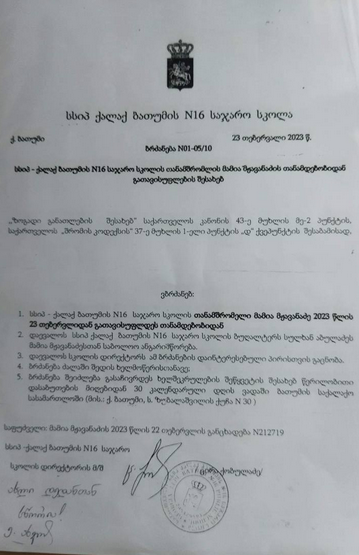 სსიპ ქალაქ ბათუმის N16 საჯარო სკოლა
ქ. ბათუმი 23 თებერვალი 2023 წ.
ბრძანება N01-05/10
სსიპ - ქალაქ ბათუმის N16 საჯარო სკოლის თანამშრომლის მამია მჟავანაძის თანამდებობიდან
გათავისუფლების შესახებ
„ზოგადი განათლების შესახებ" საქართველოს კანონის 43-ე მუხლის მე-2 პუნქტის,
საქართველოს „შრომის კოდექსის" 37-ე მუხლის 1-ელი პუნქტის „დ" ქვეპუნქტის შესაბამისად,
ვბრძანებ:
1. სსიპ - ქალაქ ბათუმის N16 საჯარო სკოლის თანამშრომელი მამია მჟავანაძე 2023 წლის
23 თებერვლიდან გათავისუფლდეს თანამდებობიდან
2. დაევალოს სსიპ ქალაქ ბათუმის N16 საჯარო სკოლის ბუღალტერს სულხან აბულაძეს
მამია მჟავანაძესთან საბოლოო ანგარიშსწორება.
3. დაევალოს სკოლის დირექტორს ამ ბრძანების დაინტერესებული პირისთვის გაცნობა.
4. ბრძანება ძალაში შედის ხელმოწერისთანავე;
5. ბრძანება შეიძლება გასაჩივრდეს ხელშეკრულების შეწყვეტის შესახებ წერილობითი
დასაბუთების მიღებიდან 30 კალენდარული დღის ვადაში ბათუმის საქალაქო
სასამართლოში (მის: ქ. ბათუმი, ზ. ზუბალაშვილის ქუჩა N 30 )
საფუძველი მამია მჟავანაძის 2023 წლის 22 თებერვლის განცხადება N212719
სსიპ -ქალაქ ბათუმის N16 საჯარო
სკოლის დირექტორის მ/შ /ცირა ქობულაძე/
ასლი დედანთან
სწორია!